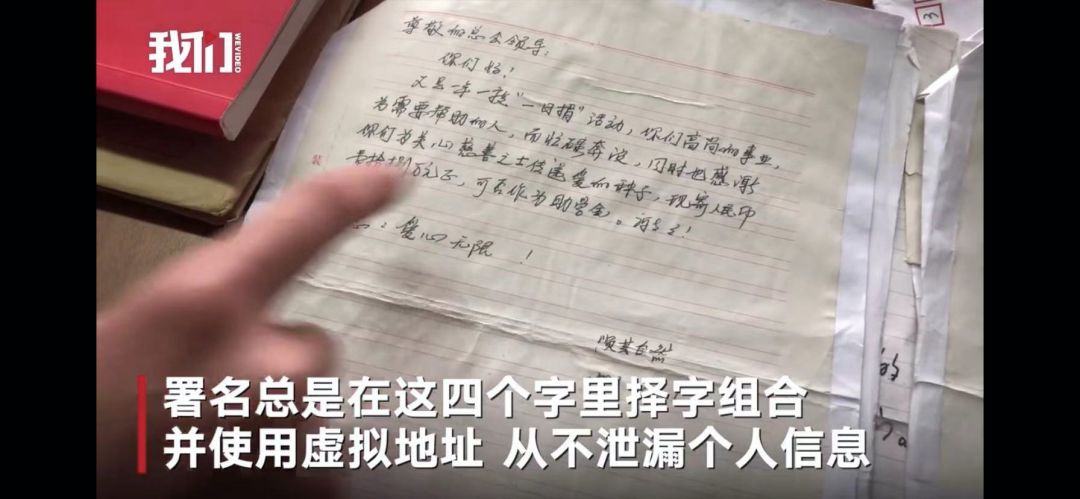 我们
WEVIDEO
3
尊敬的总会领导：
你们好！
又是一年一度“一日捐”活动，你们高尚的事业，
为需要帮助的人，而忙碌奔波，同时也感谢
你们为关心慈善之士传递爱的种子，现寄人民币
万元正，可否作为助学金。
：爱心无限！
顺其自然
装
的
署名总是在这四个字里择字组合
并使用虚拟地址 从不泄漏个人信息